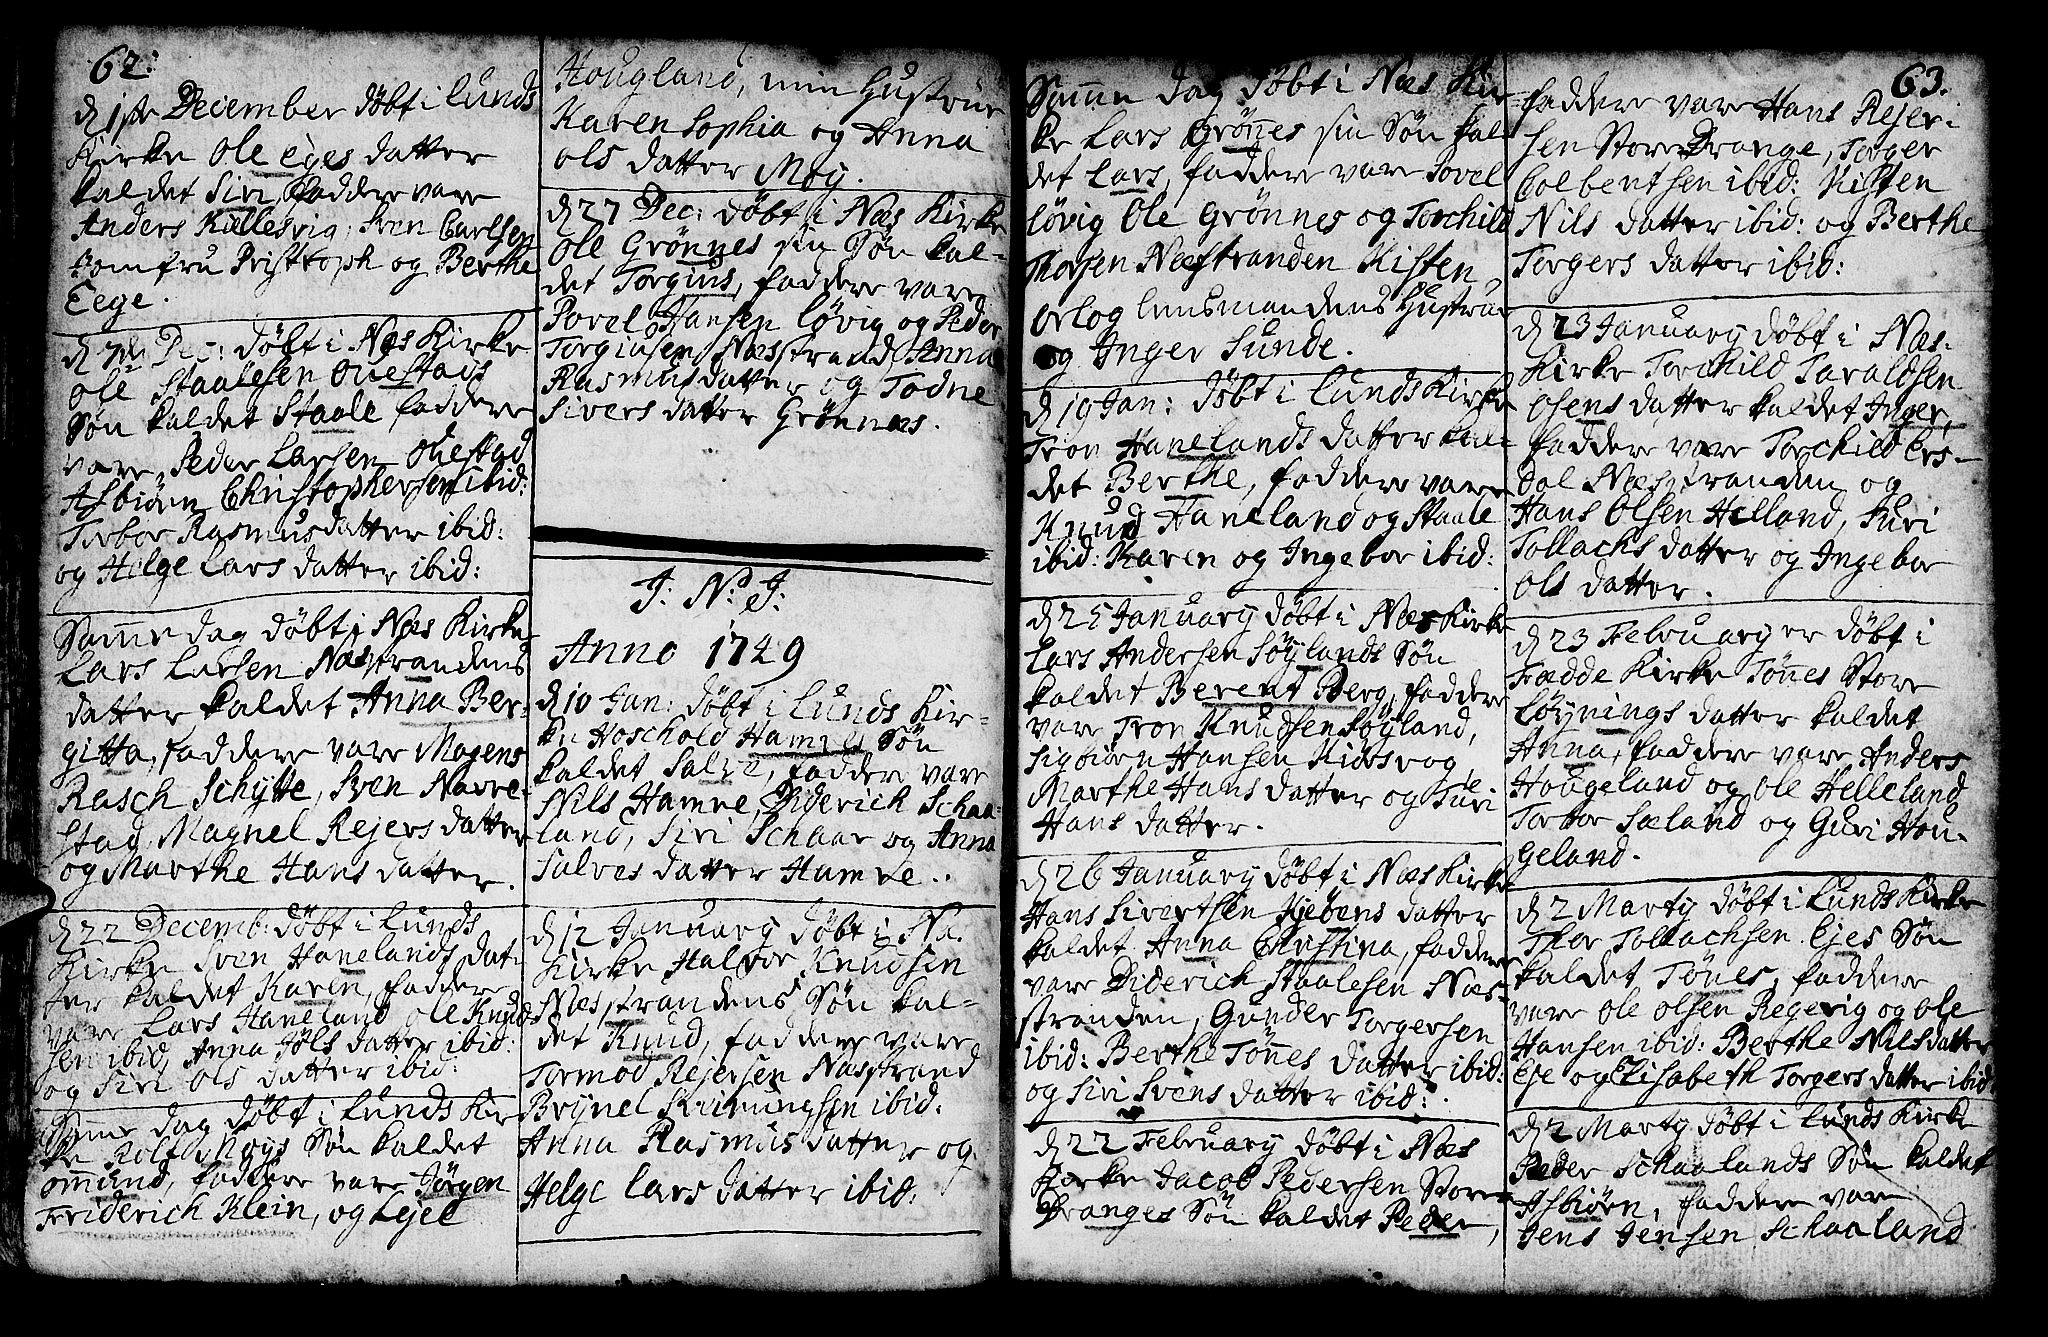 62:
d 1ste December døbt i Lunds
Kirke Ole Eges datter
kaldet Siri, faddere vare
Anders Kællesvig, Sven Carlsen
Jomfru Pristroph og Berthe
Eege.
d 7de Dec: døbt i Næs Kirke
Ole Staalesen Ouestads
Søn kaldet Staale faddere
vare, Peder Larsen Ouestad
Asbiørn Christophersen ibid:
Torbor Rasmusdatter ibid:
og Helge Lars datter ibid:
Samme dag døbt i Næs Kirke
Lars Larsen Næstrandens
datter kaldet Anna Ber-
gitta, faddere vare Mogens
Rasch Schytte, Sven Navre-
stad, Magnel Rejers datter
og Marthe Hans datter.
d 22 Decemb: døbt i Lunds
Kirke Sven Hanelands dat-
ter kaldet Karen, faddere
vare Lars Haneland Ole Knud
sen ibid, Anna Jøls datter ibid:
og Siri Ols datter ibid:
Samme dag døbt i Lunds Kir
ke Rolf Moys Søn kaldet
Ommund, faddere vare Jørgen
Friderich Klein, og Lejel
Hougland, min Hustrue
Karen Sophia og Anna
Ols datter Moy.
d 27 Dec: døbt i Næs Kirke
Ole Grønnes sin Søn kal-
det Torgius, faddere vare
Povel Hansen Løvig og Peder
Torgiusen Næsstrand, Anna
Rasmusdatter og Todne
Sivers datter Grønnæs.
J: N: J:
Anno 1749
d 10 Jan: døbt i Lunds Kir-
ke Hoschold Hamres Søn
kaldet Salve, faddere vare
Nils Hamre, Diderich Schaa-
land, Siri Schaar og Anna
Salves datter Hamre.
d 12 January døbt i Næ.
Kirke Halvor Knudsen
Næsstrandens Søn kal-
det Knud, faddere vare
Tormod Rejersen Næsstrand
Brynel Ommundsen ibid.
Anna Rasmus datter og
Helge Lars datter ibid:
Samme dag døbt i Næs Kir
ke Lars Grønnes sin Søn kal
det Lars, faddere vare Povel
Løvig Ole Grønnes og Torchild
Thorsen Næsstranden Kisten
Orlog Lensmandens Hustrue
og Inger Sunde.
d 19 Jan: døbt i Lunds Kirke
Tron Hanelands datter kal-
det Berthe, faddere vare
Knud Haneland og Staale
ibid: Karen og Ingebor ibid:
d 25 January døbt i Næs Kirke
Lars Andersen Søylands Søn
kaldet Berent Berg, faddere
vare Tron Knudsen Søyland,
Sigbiørn Hansen Kiørsvog
Marthe Hans datter og Turi
Hans datter.
d 26 January døbt i Næs Kirke
Hans Sivertsen Kjøbens datter
kaldet Anna Christina, faddere
vare Diderich Staalesen Næs-
stranden, Gunder Torgersen
ibid: Berthe Tønnes datter ibid:
og Siri Svens datter ibid:
d 22 February døbt i Næs
Kirke Jacob Pedersen Store
Dranges Søn kaldet Peder,
63.
faddere vare Hans Rejer-
sen Store Drange, Torger
Colbentsen ibid: Kisten
Nils datter ibid: og Berthe
Torgers datter ibid:
d 23 January døbt i Næs-
Kirke Torchild Taraldsen
Osens datter kaldet Inger,
faddere vare Torchild Ers-
dal Næsstranden og
Hans Olsen Helland, Turi
Tollachs datter og Ingebor
Ols datter.
d 23 Februaryer døbt i
Fædde Kirke Tønnes Store
Løynings datter kaldet
Anna, faddere vare Anders
Hougeland og Ole Helleland
Torbor Sæland og Guri Hou-
geland.
d 2 Marty døbt i Lunds Kirke
Thor Tollachsen Ejes Søn
kaldet Tønes, faddere
vare Ole Olsen Regevig og Ole
Hansen ibid: Berthe Nilsdatter
Eje og Elisabeth Torgers datter ibid:
d 2 Marty døbt i Lunds Kirke
Peder Schaalands Søn kaldet
Asbiørn, faddere vare
Jens Jensen Schaaland